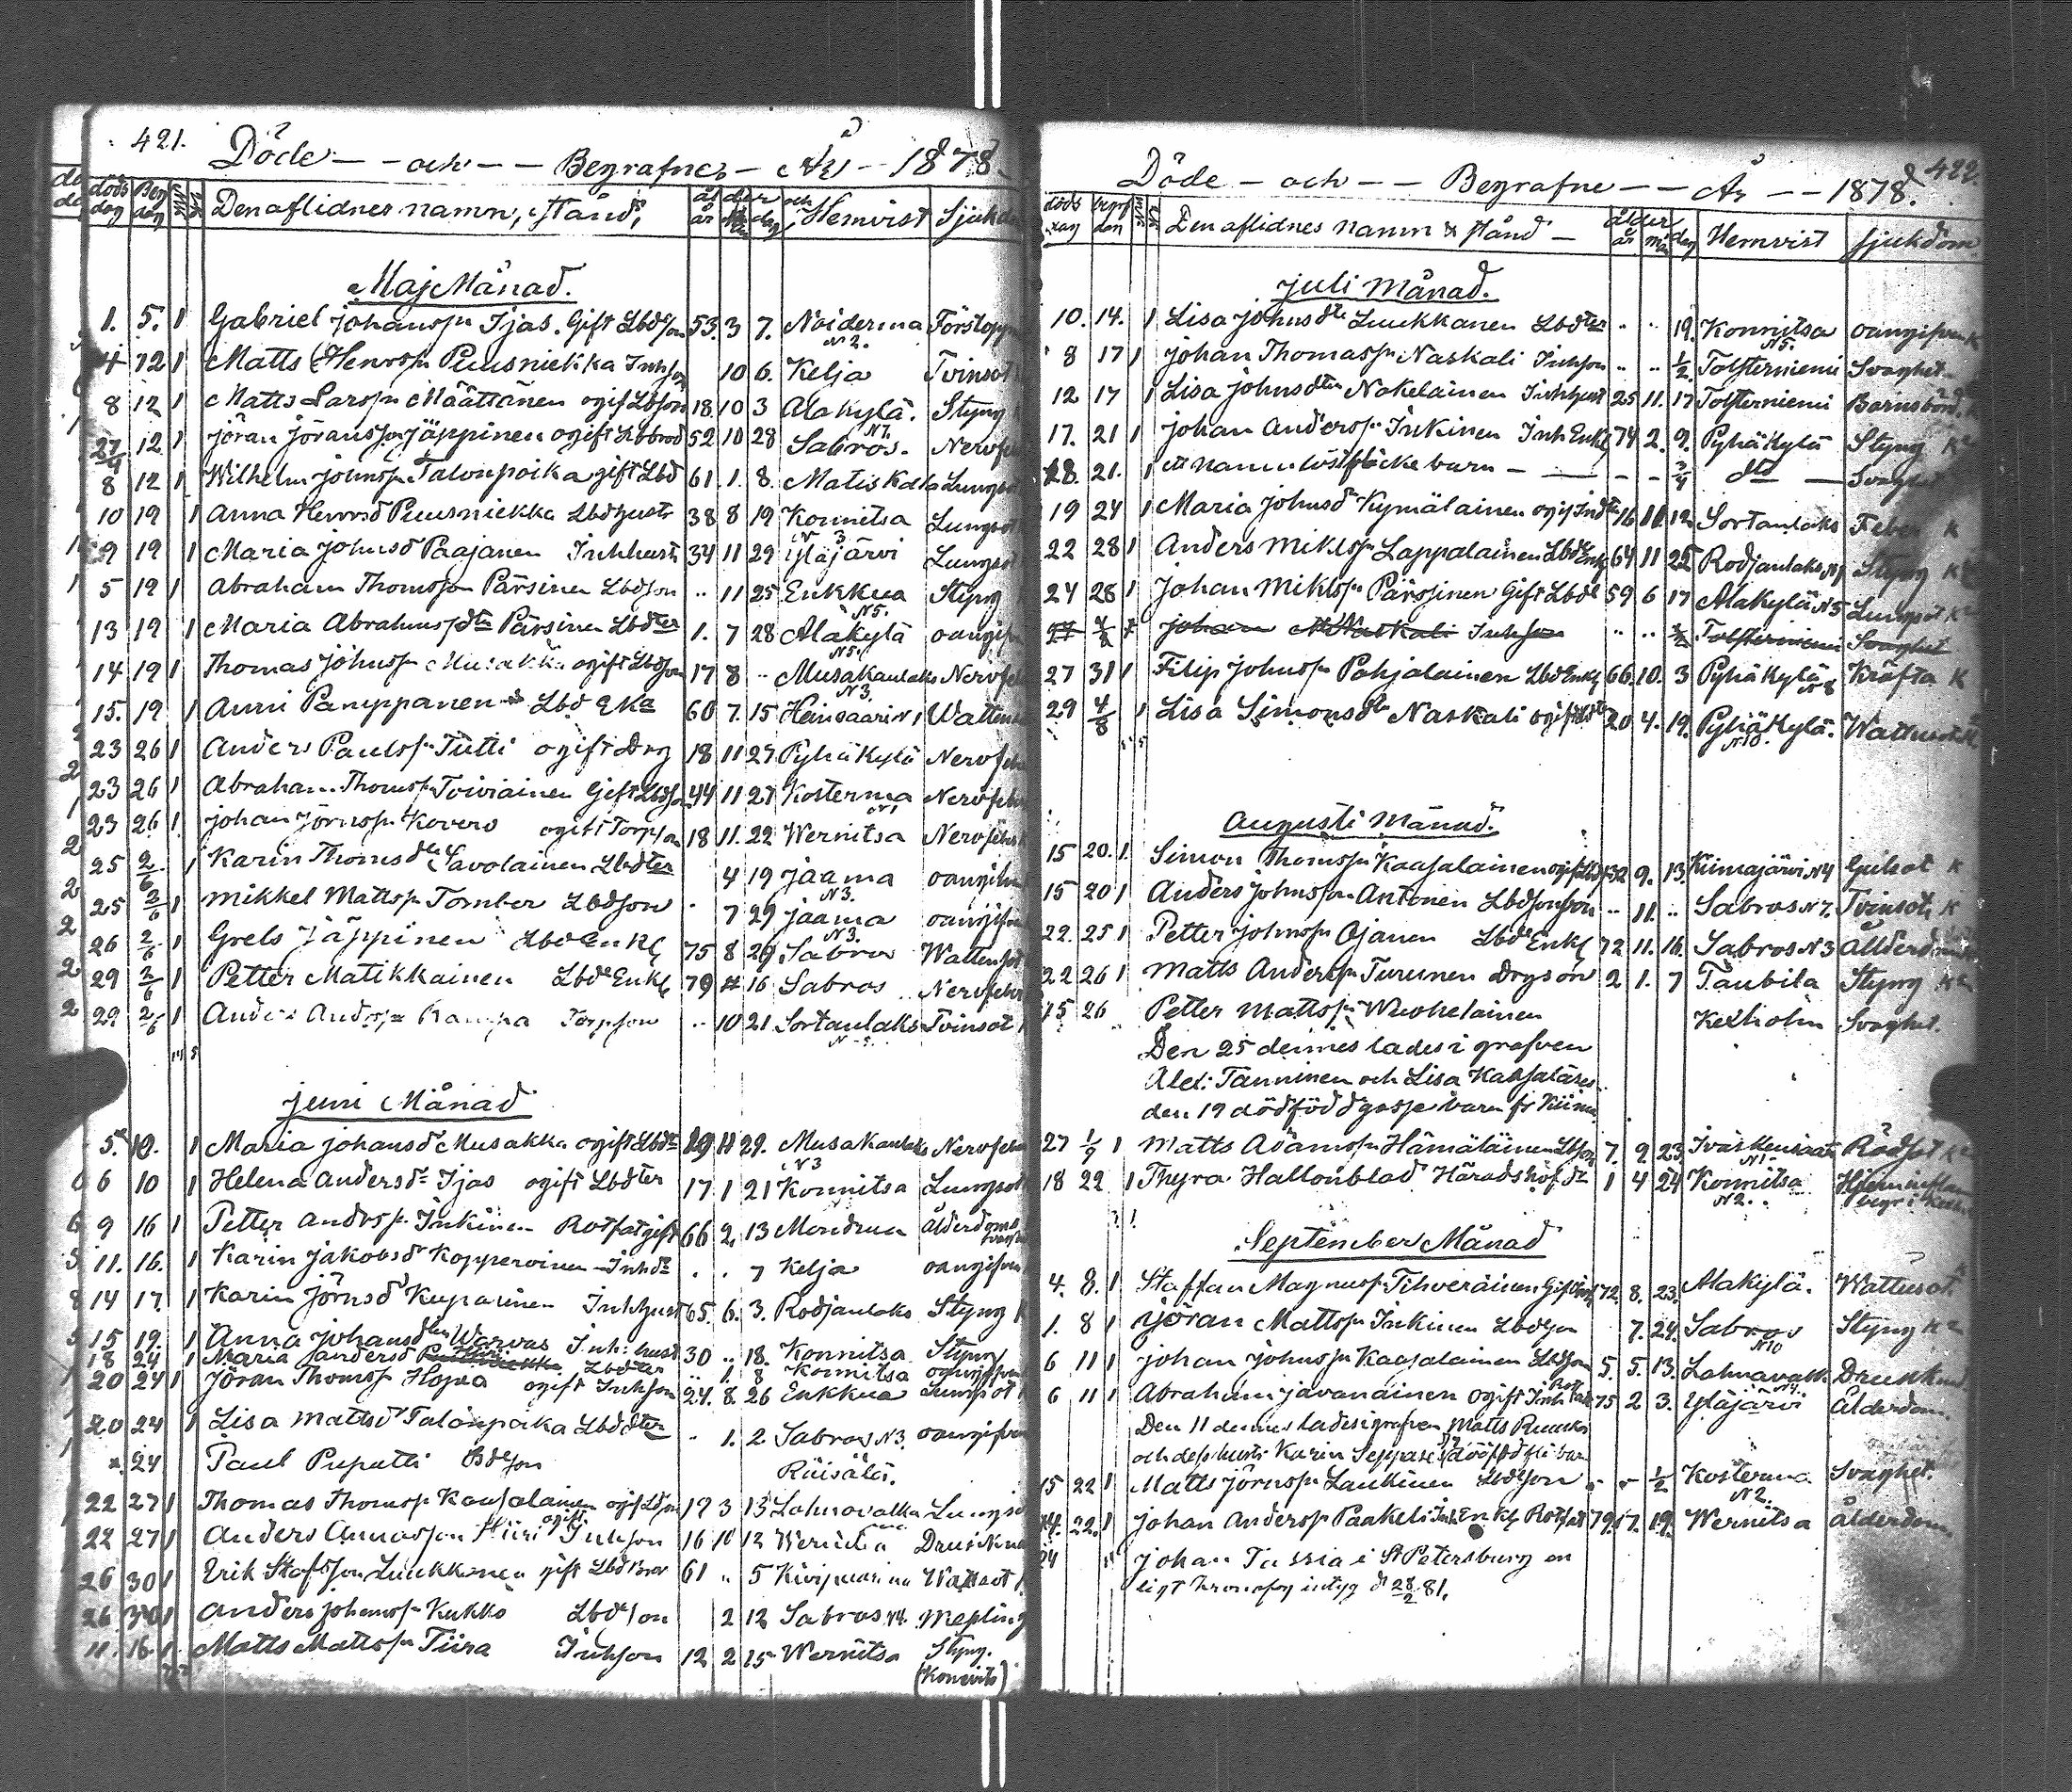 421.
Döde - - och - - Begrafnes - År - 1878
döds dag Beg dag Den aflidnes namn, stånd, ålder år dag och Hemvist Sjukd
Maj Månad.
1. 5. 1 Gabriel Johanssn Ijas. Gift Lbdson 53. 3 7. Noiderma N2. Förstopp
4 12 1 Matts Henrssn Puusniekka Inhson 10 6. Kelja Tvinsot
8 12 1 Matts Larssn Määttänen ogift Lbdson 18. 10 3 Alakylä. Styng
27/4 12 1 Jöran Jöransson Jäppinen ogift Lbdbrod 52 10 28 N7. Sabros. Nervfe
8 12 1 Wilhelm Johnssn Talonpoika gift Lbd 61. 1. 8. Matiskala Lungsot
10 19 1 Anna Henrsd Puusniekka Lbdhustr 38 8 19 Konnitsa N 3 Lungsot
9 19 1 Maria Johnsd Paajanen Inhhustr 34 11 29 Yläjärvi Lungsot
5 19 1 Abraham Thomsson Pärsinen Lbdson .. 11 25 Enkkua Styng
13 19 1 Maria Abrahmsdtr Pärsinen Lbdter 1. 7 28 N5. Alakylä oangifv
14 19 1 Thomas Johnssn Musakka ogift Lbdson 17 8 .. N5. Musakanlaks Nervfeb
15. 19 1 Anni Pamppanen Lbd Eka 60 7. 15 N3. Heinsaari N1 Watten
23 26 1 Anders Paulssn Tütti ogift Drg 18 11 27 Pyhäkylä Nervfeb
23 26 1 Abraham Thomssn Toiviainen Gift Lbdson 44 11 27 Kosterma N1 Nervfeb
23 26 1 Johan Jörnssn Kovero ogift Torpson 18 11. 22 Wernitsa Nervfeb
25 2/6 1 Karin Thomsdtr Savolainen Lbdter 4 19 Jaama N3. oangifven
25 2/6 1 Mikkel Mattssn Tomber Lbdson . 7 29 Jaama N3. oangifven
26 2/6 1 Grels Jäppinen Lbde Enkl 75 8 29 Sabros Wattusot
29 2/6 1 Petter Matikkainen Lbde Enkl 79 16 Sabros Nervfeb
29. 2/6 1 Anders Andrssn Torpson .. 10 21 Sortanlaks Tvinsot
Juni Månad
5. 10. 1 Maria Johansd Musakka ogift Lbdtr 29 11 29. Musakanlaks Nervfeb
6 10 1 Helena Andersdr Ijas ogift Lbdter 17 1 21 N3 Konnitsa Lungsot
9 16 1 Petter Andrssn Inkinen Rotfatgift 66 2. 13 Mondrua ålderdoms
11. 16. 1 Karin Jakobsdr Kopperoinen Inhdr . . 7 Kelja oangifven
14 17. 1 Karin Jörnsd Kuparinen Inhhust 65. 6. 3. Rodjanlaks Styng
15 19. 1 Anna Johansdtr Warvas Inh: hust 30 .. 18. Konnitsa Styng
18 24 1 Maria Andersd Lbdter .. 1. 8 Konnitsa oangifven
20 24 1 Jöran Thomssn Hopia ogift Inhson 24. 8. 26 Enkkua Lungsot
20 24 1 Lisa Mattsd Talonpoika Lbddter . 1. 2 Sabros N3. oangifven
24 Paul Puputti Lbdeson Räisälä.
22 27 1 Thomas Thomssn Kaasalainen ogift Lbdson 19 3 13 Lahnavalka Lungsot
22 27 1 Anders Annasson Hiiri ogift Inhson 16 10 12 Wernitsa
26 30 1 Erik Stafsson Luukkonen gift Lbdbror 61 .. 5 Kiviputarina Wattsot
26 30 1 Anders Johanssn Kukko Lbdeson 2 12 Sabros Messling
11. 16. 1 Matts Mattssn Tiira Inhson 12 2 15 Wernitsa Styng.
(Konevits)
422.
Döde - och - - Begrafne - - År - - 1878.
döds dag begrf den Den aflidnes namn & stånd - ålder år mån dag Hemvist Sjukdom
Juli Månad.
10. 14. 1 Lisa Johnsdtr Luukkanen Lbdter .. .. 19. Konnitsa N5. oangifven
8 17 1 Johan Thomassn Naskali Inhson .. .. 1/2. Tolsterniemi Svaghet
12 17 1 Lisa Johnsdter Nokelainen Inhhust 25 11. 17 Tolsterniemi Barnsbörd
17. 21 1 Johan Anderssn Inkinen Inh Enkl 74 2. 9. Pyhäkylä Styng K
18. 21. 1 ett namnlöst flicke barn - - - 3/4 dto Svaghet
19 24 1 Maria Johnsdr Kymäläinen ogift Indtr 16 11. 12 Sortanlaks Feber K
22 28 1 Anders Miklssn Lappalainen Lbde Enk 64 11 25 Rodjanlaks N1 Styng K
24 28 1 Johan Miklssn Pärssinen Gift Lbde 59 6 17 Alakylä N5 Lungsot K
27 4/8 1 Johan Naskali Inhson .. .. 1/2 Tolsterniemi Svaghet
27 31 1 Filip Johnssn Pohjalainen Lbd Enkl 66. 10. 3 Pyhäkylä N8 Kräfta K
29 4/8 1 Lisa Simonsdtr Naskali ogift Lbdtr 20 4. 19. Pyhäkylä. N10. Wattusot
Augusti Månad.
15 20. 1. Simon Thomssn Kaasalainen ogift Lbdson 32 9. 13. Kiimajärvi N4 Gulsot K
15 20 1 Anders Johnsson Antonen Lbdsonson .. 11. .. Sabros N7. Tvinsot K
22. 25 1 Petter Johnssn Ojanen Lbde Enkl 72 11. 16. Sabros N3 Ålderdom
22 26 1 Matts Anderssn Turunen Drgson 2 1. 7 Taubila Styng K
15 26 Petter Mattssn Wuohelainen Kexholm Svaghet.
Den 25 dennes lades i grafven
Alex: Tanninen och Lisa Kaasaläses
den 19 dödfödd gosse barn fr Kiima
27 1/9 1 Matts Adamssn Hämäläinen Lbdson 7. 9. 23 Ivaskensaari N1. Rödsot
18 22 1 Thyra Hallonblad Häradshöfdr 1 4 24 Konnitsa N2. Hjerninflam
begr: i Kexh
September Månad
4. 8. 1 Staffan Magnussn Tihveräinen Gift Inh 72. 8. 23. Alakylä. Wattusot
1. 8 1 Jöran Mattssn Inkinen Lbdson 7. 24. Sabros N10 Styng K
6 11 1 Johan Johnssn Kaasalainen Lbdson 5. 5. 13. Lahnavalk. Drunknad.
6 11 1 Abraham Javanainen ogift Inh Rotf 75 2 3. Yläjärvi Ålderdom.
Den 11 dennes lades i grafven Matts Ruusko
och dess hustr Karin Seppäses dödfödd fli: bar
15 22 1 Matts Jörnssn Laukinen Lbdeson - - 1/2 Kosterma N2. Svaghet.
14. 22. 1 Johan Anderssn Paakeli Inh Enkl Rotfat 79. 17. 19. Wernitsa ålderdom.
24 Johan Tassia i St Petersburg en
ligt kronofog intyg d 28/2 81.